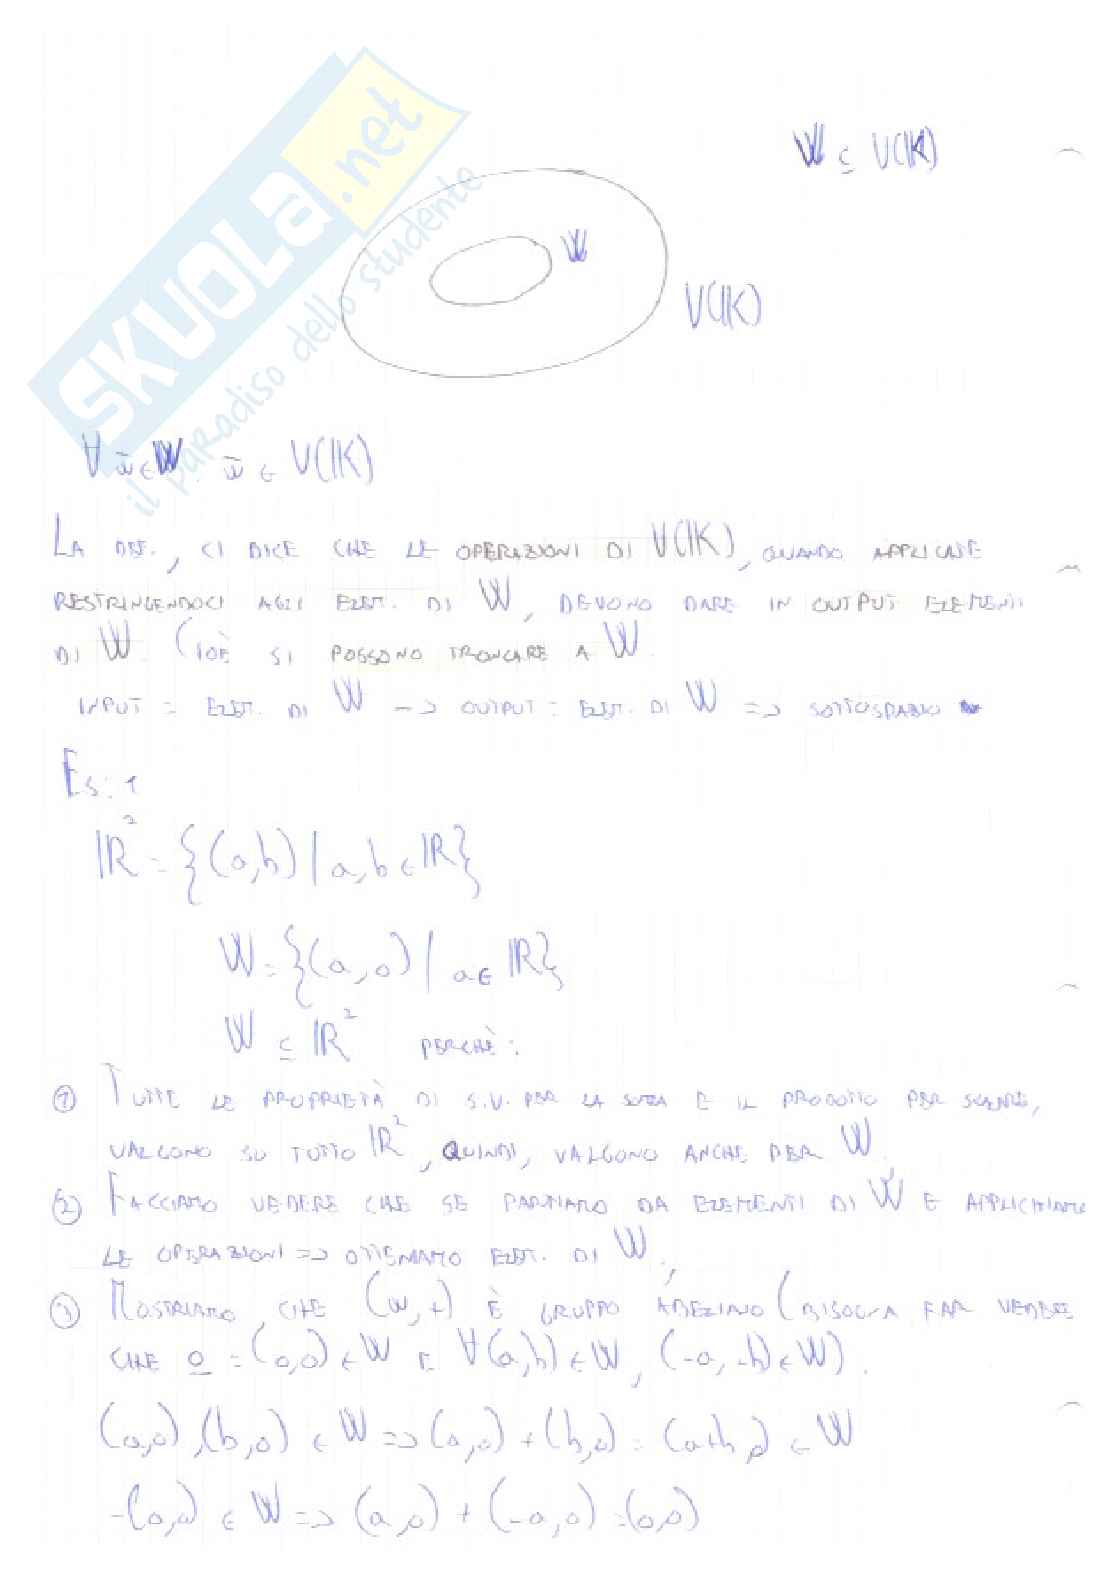 SKUOLA.net
il paradiso dello studente
W ⊆ V(K)
W
V(K)
∀ w̄ ∈ W. w̄ ∈ V(K)
LA DEF., CI DICE CHE LE OPERAZIONI DI V(K), QUANDO APPLICATE
RESTRINGENDOCI AGLI ELEM. DI W, DEVONO DARE IN OUTPUT ELEMENTI
DI W. CIOÈ SI POSSONO TRONCARE A W.
INPUT = ELEM. DI W -> OUTPUT = ELEM. DI W => SOTTOSPAZIO
ES: 1
ℝ² = {(a,b) | a,b ∈ ℝ}
W = {(a,0) | a ∈ ℝ}
W ⊆ ℝ² PERCHÈ:
① TUTTE LE PROPRIETÀ DI S.V. PER LA SOMMA E IL PRODOTTO PER SCALARE,
VALGONO SU TUTTO ℝ², QUINDI, VALGONO ANCHE PER W.
② FACCIAMO VEDERE CHE SE PARTIAMO DA ELEMENTI DI W E APPLICHIAMO
LE OPERAZIONI => OTTENIAMO ELEM. DI W.
③ MOSTRIAMO, CHE (W,+) È GRUPPO ABELIANO (BISOGNA FAR VEDERE
CHE 0 = (0,0) ∈ W E ∀(a,b) ∈ W, (-a,-b) ∈ W).
(a,0),(b,0) ∈ W => (a,0) + (b,0) = (a+b,0) ∈ W
-(a,0) ∈ W => (a,0) + (-a,0) = (0,0)